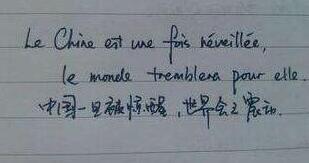 Le Chine est une fois réveillée,
le monde tremblera pour elle.
中国一旦被惊醒，世界会之震动.